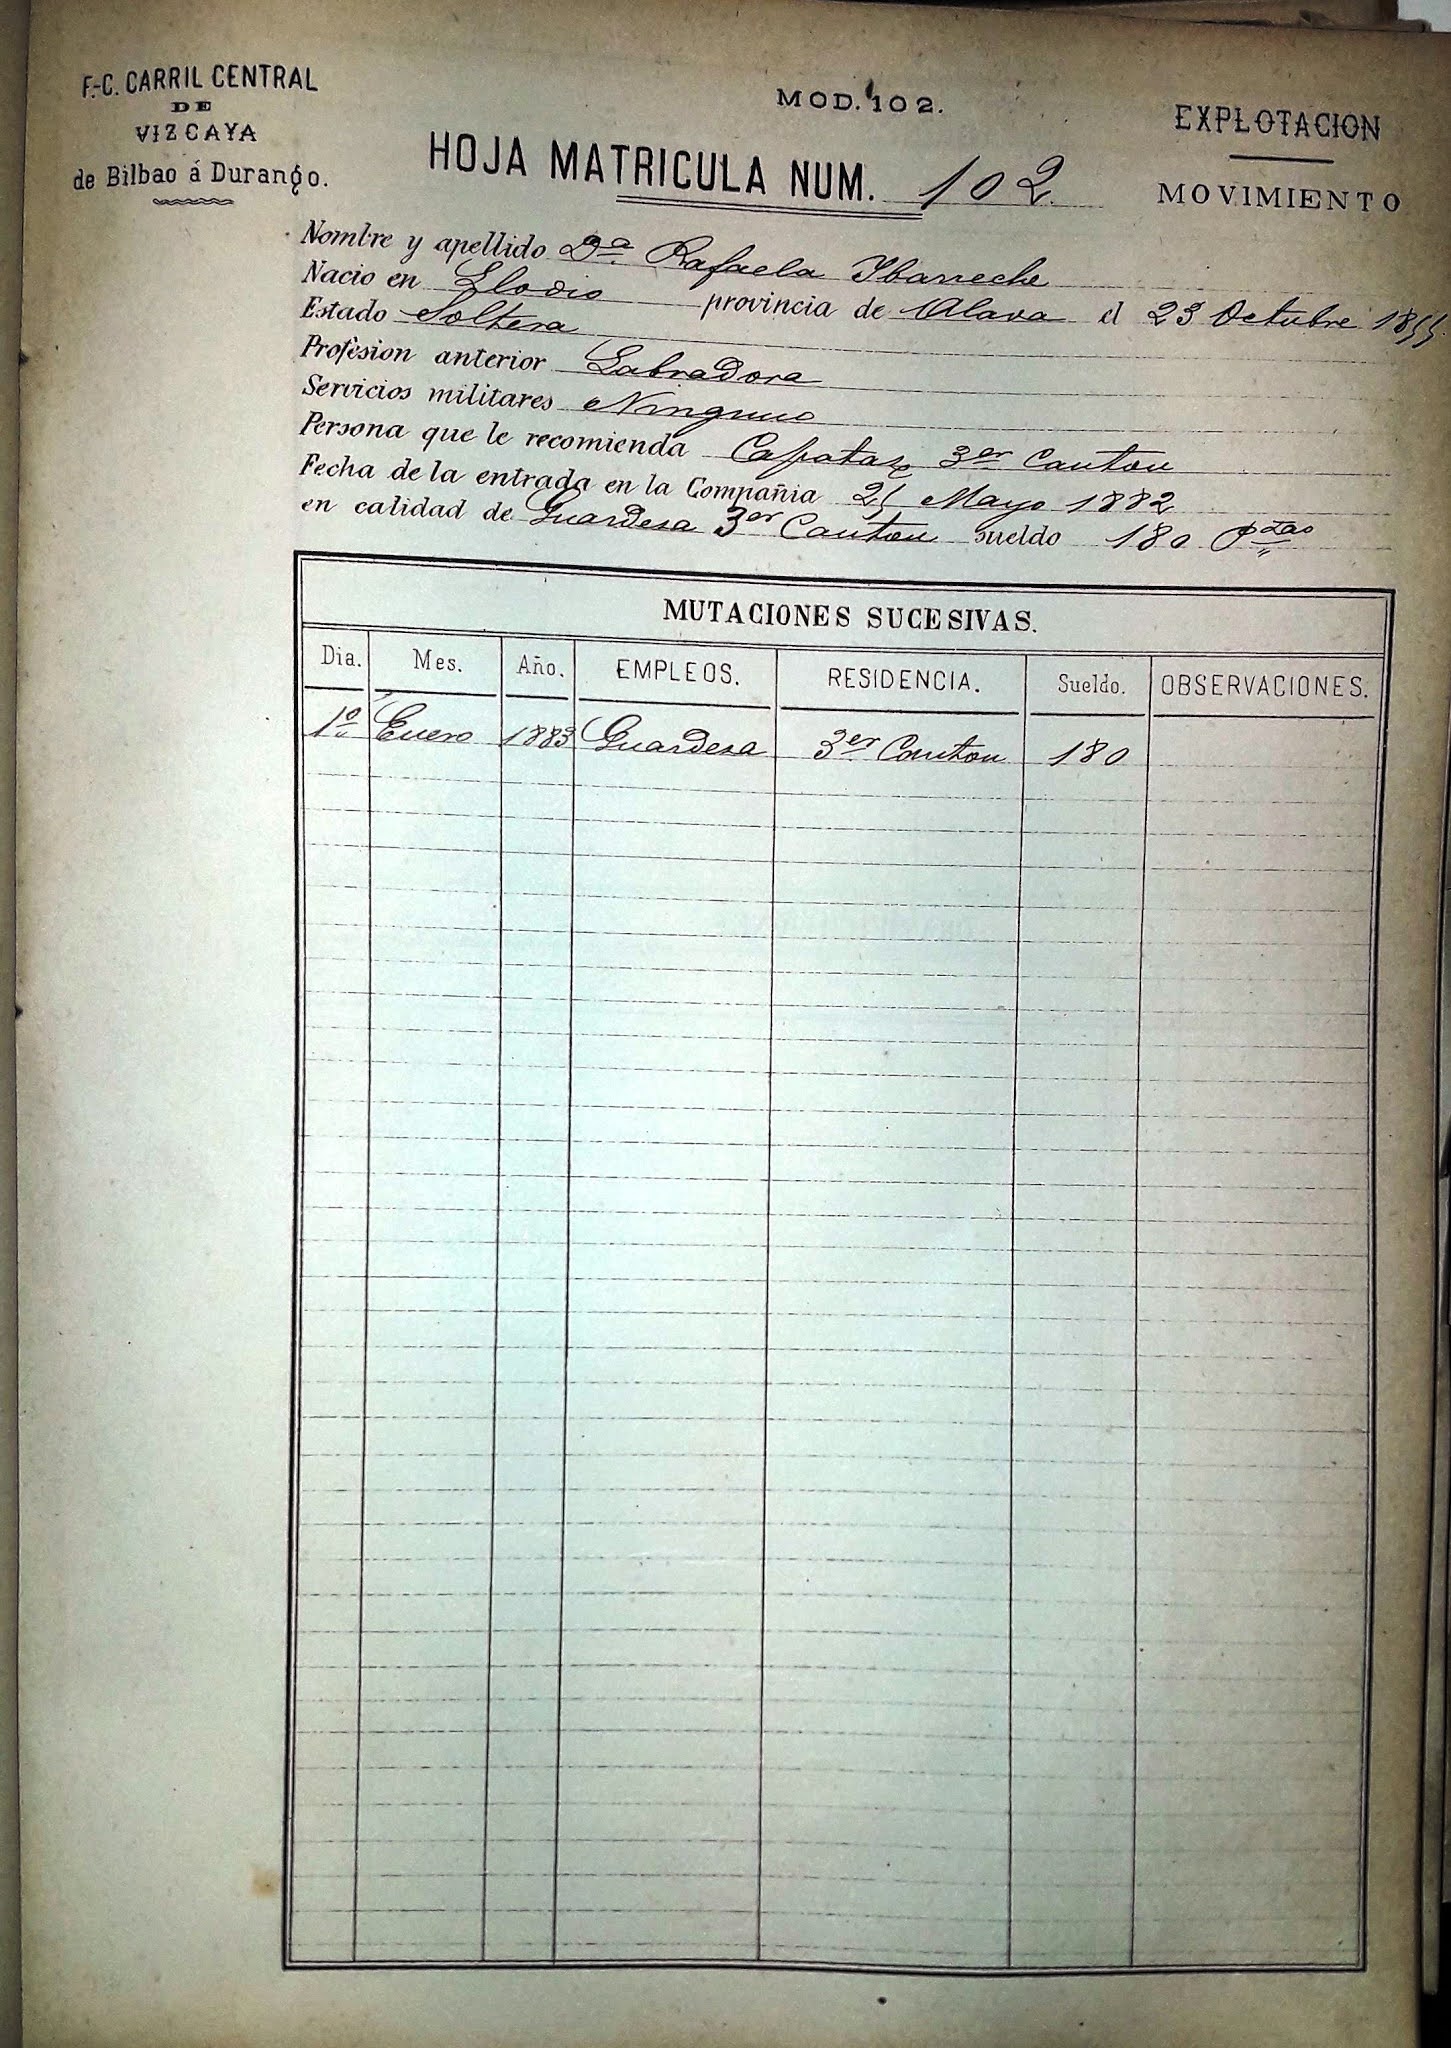 F.-C. CARRIL CENTRAL
DE
VIZCAYA
de Bilbao á Durango.
MOD. 102.
EXPLOTACION
MOVIMIENTO
HOJA MATRICULA NUM. 102
Nombre y apellido Dª Rafaela Ybarreche
Nacio en Llodio provincia de Alava el 23 Octubre 1855
Estado Soltera
Profesion anterior Labradora
Servicios militares Ninguno
Persona que le recomienda Capataz 3er Canton
Fecha de la entrada en la Compañia 25 Mayo 1882
en calidad de Guardesa 3er Canton sueldo 180 Ptas
MUTACIONES SUCESIVAS.
Dia. Mes. Año. EMPLEOS. RESIDENCIA. Sueldo. OBSERVACIONES.
1º Enero 1883 Guardesa 3er Canton 180